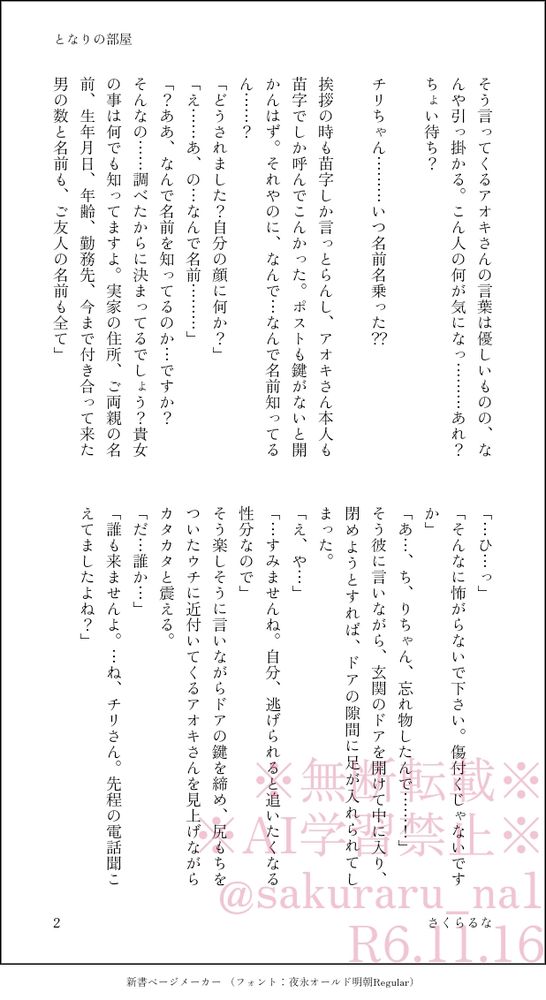 となりの部屋
そう言ってくるアオキさんの言葉は優しいものの、な
んや引っ掛かる。こん人の何が気になっ………あれ？
ちょい待ち？
チリちゃん…………いつ名前名乗った⁇
挨拶の時も苗字しか言っとらんし、アオキさん本人も
苗字でしか呼んでこんかった。ポストも鍵がないと開
かんはず。それやのに、なんで…なんで名前知ってる
ん……？
「どうされました？自分の顔に何か？」
「え……あ、の…なんで名前………」
「？ああ、なんで名前を知ってるのか…ですか？
そんなの……調べたからに決まってるでしょう？貴女
の事は何でも知ってますよ。実家の住所、ご両親の名
前、生年月日、年齢、勤務先、今まで付き合って来た
男の数と名前も、ご友人の名前も全て」
「…ひ…っ」
「そんなに怖がらないで下さい。傷付くじゃないです
か」
「あ…、ち、りちゃん、忘れ物したんで……！」
そう彼に言いながら、玄関のドアを開けて中に入り、
閉めようとすれば、ドアの隙間に足が入れられてし
まった。
「え、や…」
「…すみませんね。自分、逃げられると追いたくなる
性分なので」
そう楽しそうに言いながらドアの鍵を締め、尻もちを
ついたウチに近付いてくるアオキさんを見上げながら
カタカタと震える。
「だ…誰か…」
「誰も来ませんよ。…ね、チリさん。先程の電話聞こ
えてましたよね？」
※無断転載※
※AI学習禁止※
@sakuraru_na1
R6.11.16
2
さくらるな
新書ページメーカー （フォント：夜永オールド明朝Regular）